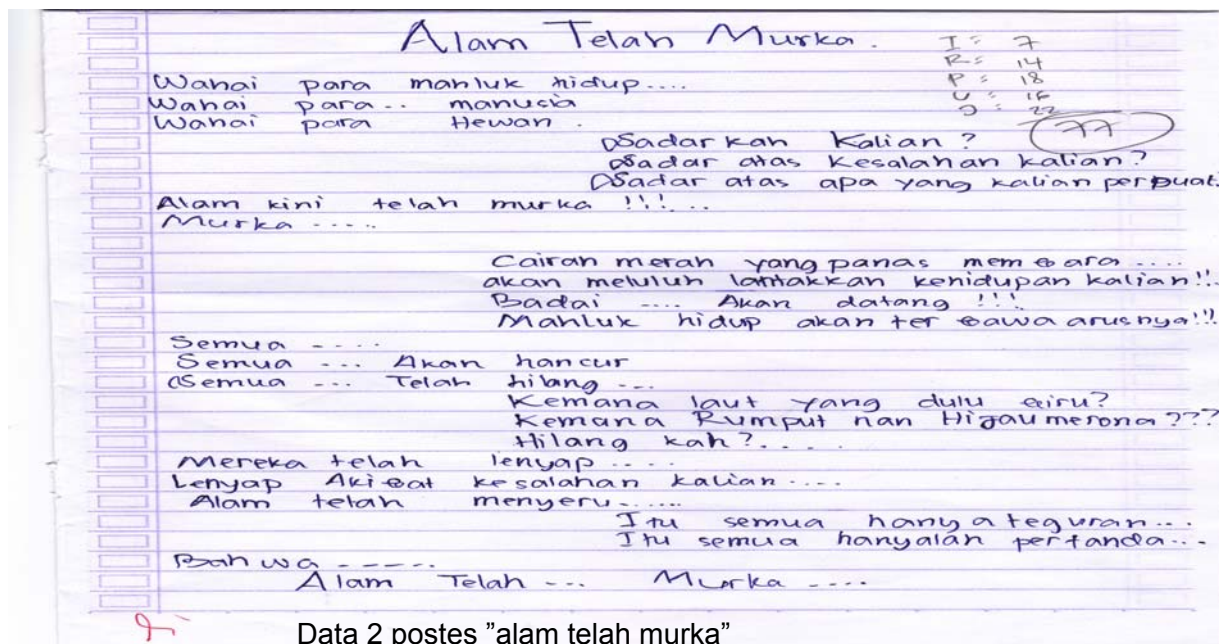 Alam Telah Murka.
I = 7
R = 14
P = 18
U = 16
J = 22
77
Wahai para mahluk hidup....
Wahai para.. manusia
Wahai para Hewan.
Sadarkah Kalian?
Sadar atas Kesalahan kalian?
Sadar atas apa yang kalian perbuat.
Alam kini telah murka !!!...
Murka .....
Cairan merah yang panas membara ....
akan meluluh lantakkan kehidupan kalian!!.
Badai .... Akan datang !!!
Mahluk hidup akan terbawa arusnya!!!
Semua ....
Semua ... Akan hancur
Semua ... Telah hilang ...
Kemana laut yang dulu biru?
Kemana Rumput nan Hijau merona???
Hilang kah?....
Mereka telah lenyap ....
Lenyap Akibat kesalahan kalian....
Alam telah menyeru......
Itu semua hanya teguran...
Itu semua hanyalah pertanda...
Bahwa .....
Alam Telah ... Murka ....
Data 2 postes "alam telah murka"